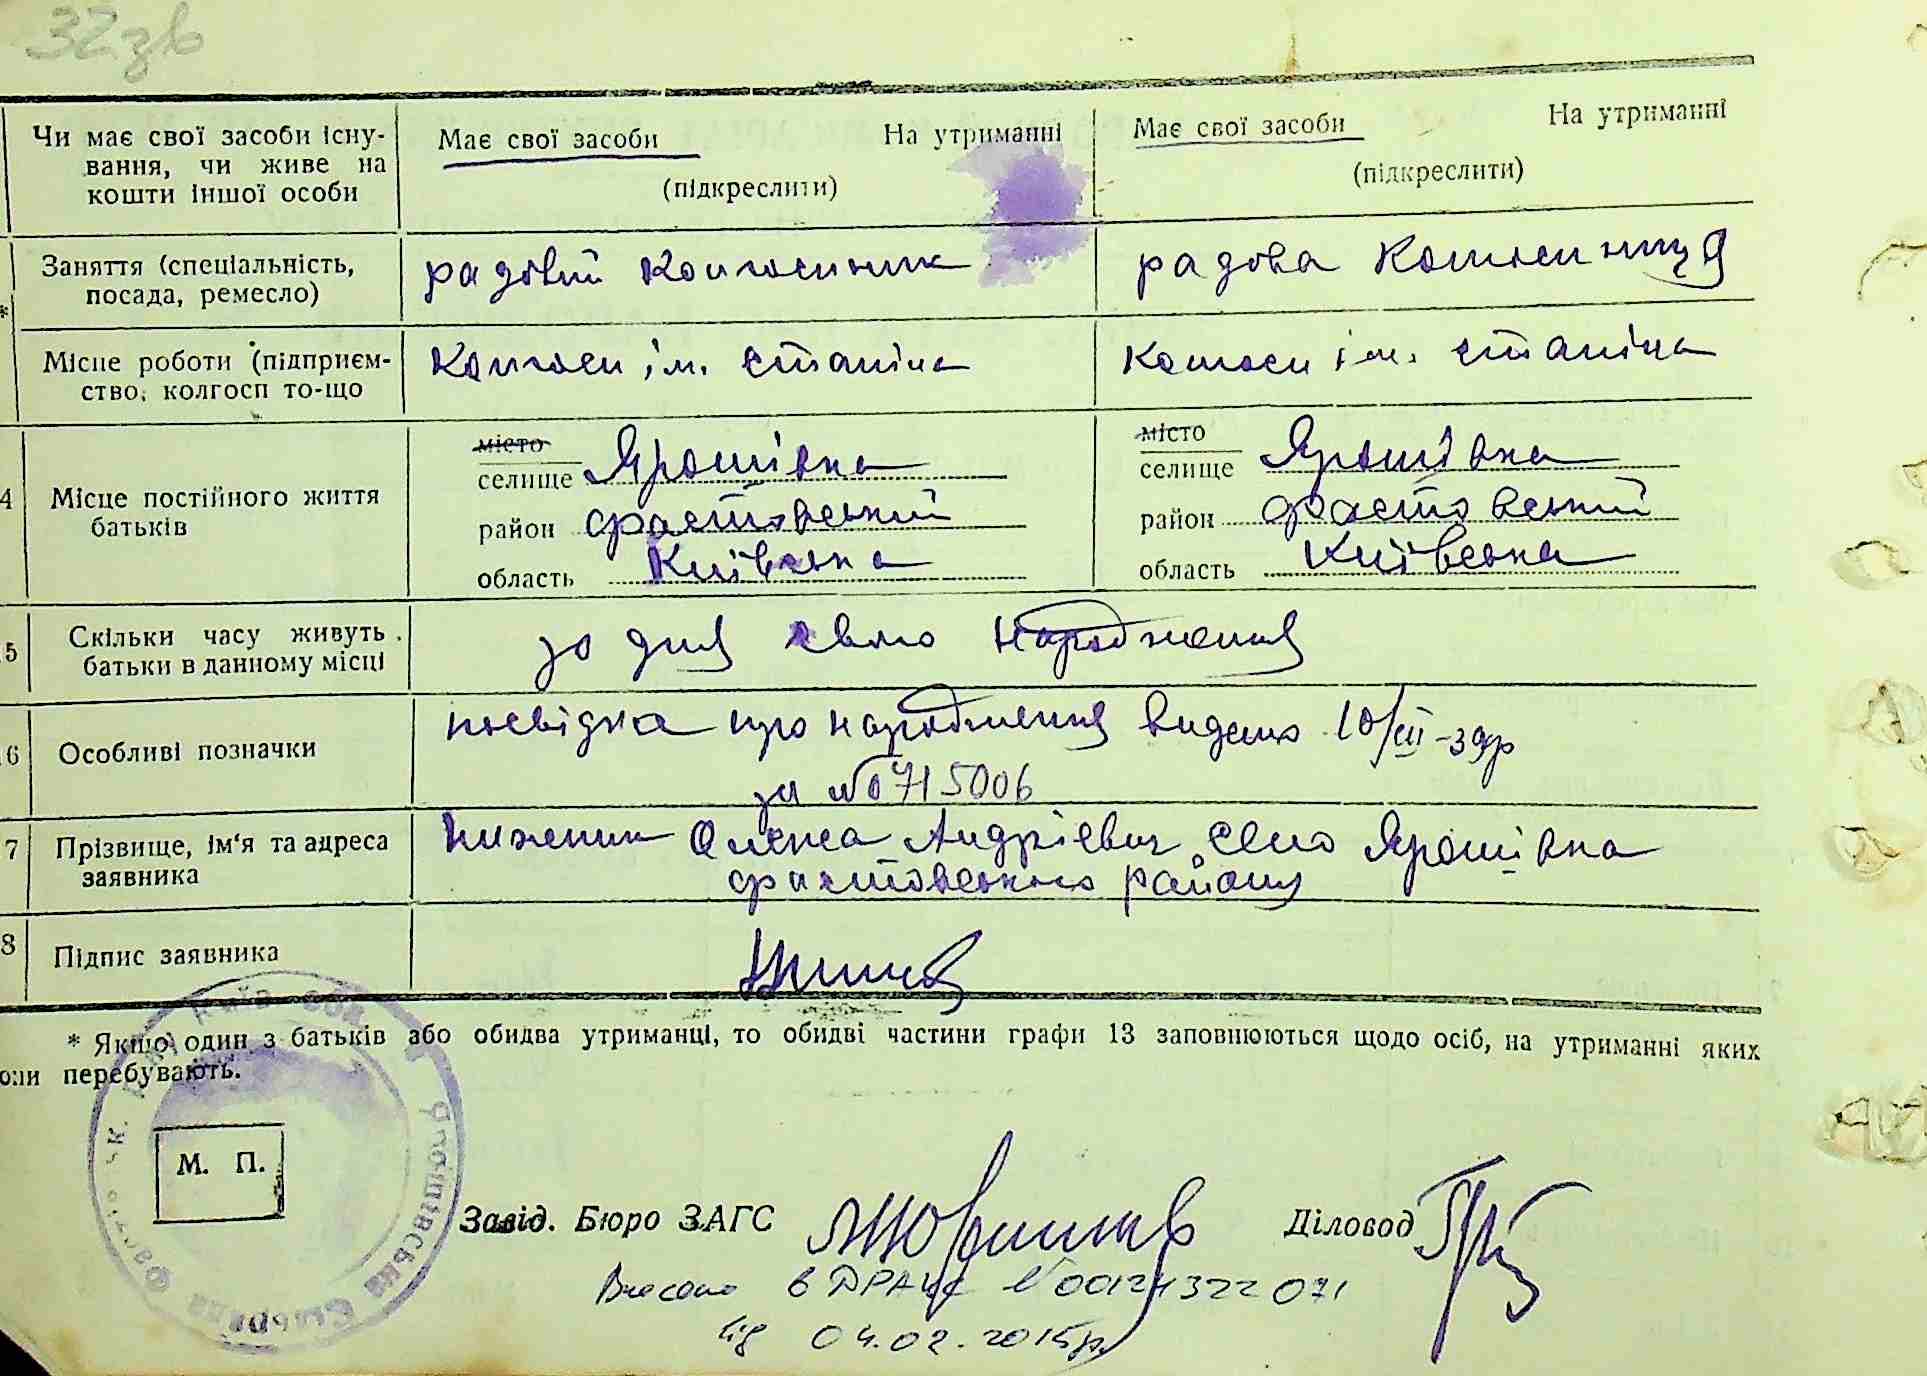 32зв
Чи має свої засоби існу-
вання, чи живе на
кошти іншої особи
Має свої засоби На утриманні
(підкреслити)
Має свої засоби На утриманні
(підкреслити)
Заняття (спеціальність,
посада, ремесло)
радовий колгоспник
радова колгоспниця
*
Місце роботи (підприєм-
ство, колгосп то-що
колгосп ім. сталіна
колгосп ім. сталіна
4 Місце постійного життя
батьків
місто
селище Ярошівка
район фастовський
область Київська
місто
селище Ярошівка
район фастовський
область Київська
5 Скільки часу живуть
батьки в данному місці
зо дня свого народження
16 Особливі позначки
посвідка про народження видано 10/III-39р
за №0715006
7 Прізвище, ім'я та адреса
заявника
Олекса Андрієвич село Ярошівка
фастовського району
8 Підпис заявника
* Якщо один з батьків або обидва утриманці, то обидві частини графи 13 заповнюються щодо осіб, на утриманні яких
они перебувають.
М. П.
Ярошівська Сільрада
Завід. Бюро ЗАГС
Діловод
Внесено в ДРАЦС №00124322071
від 04.02.2015р.